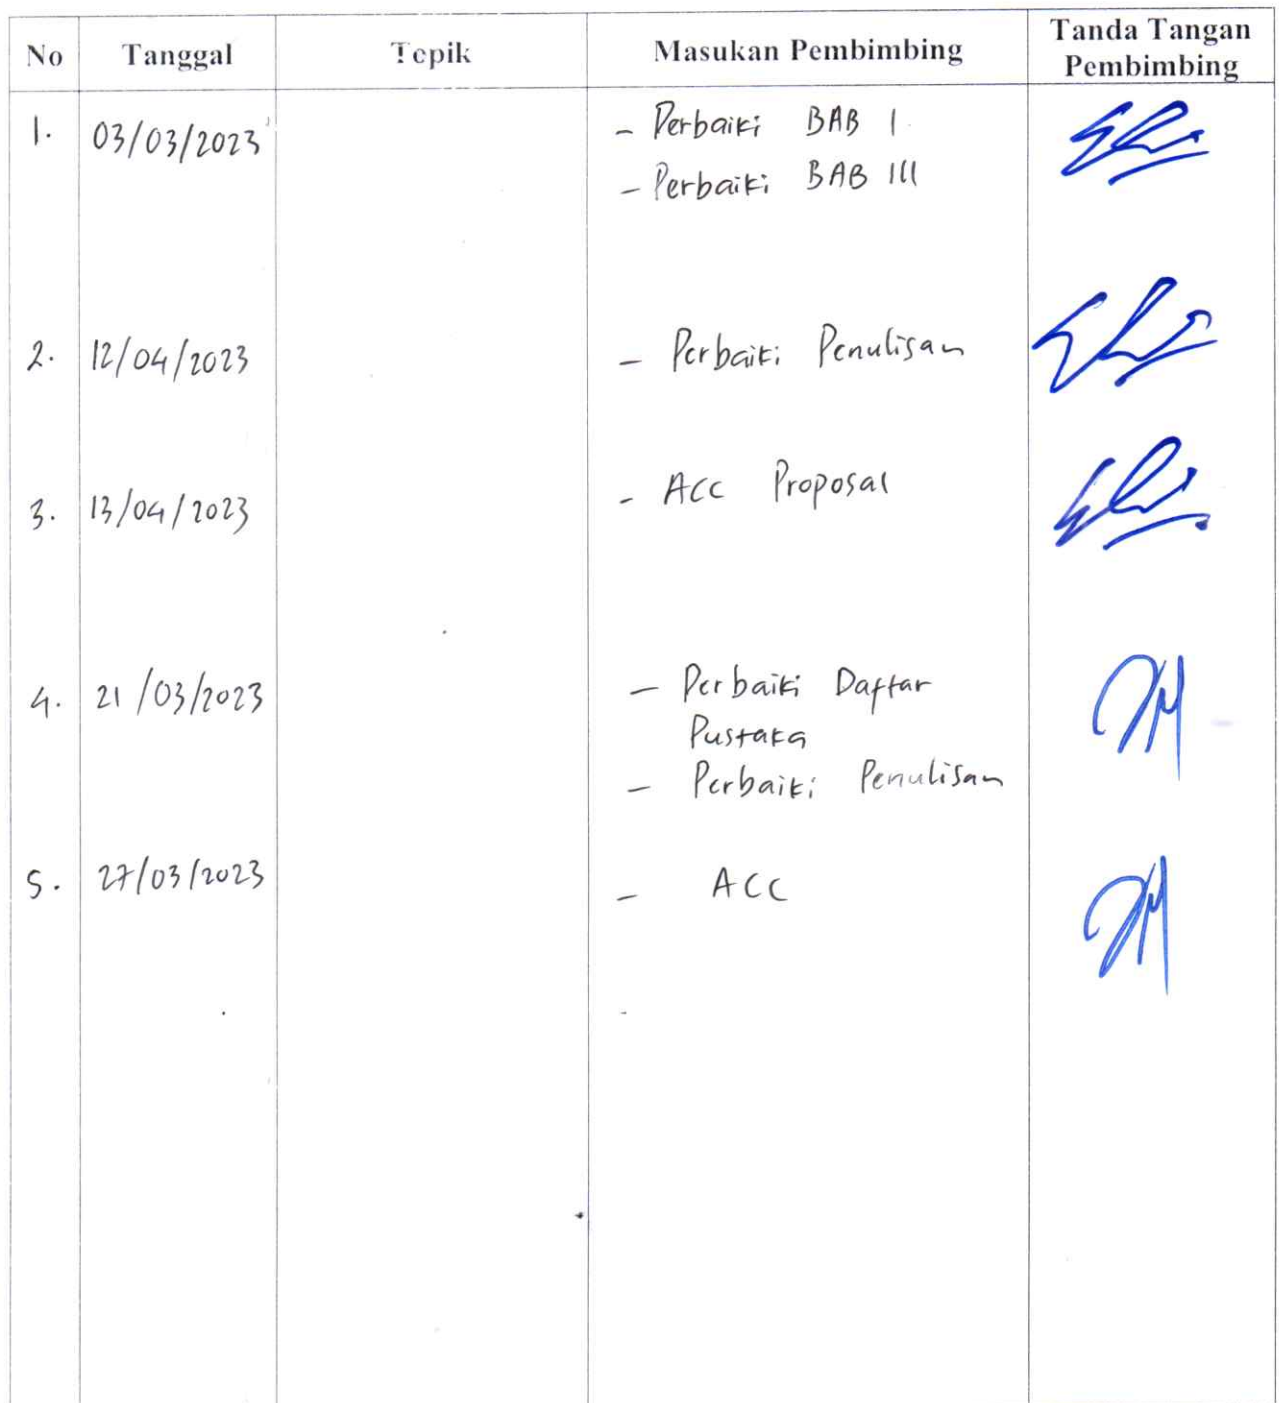 No Tanggal Topik Masukan Pembimbing Tanda Tangan Pembimbing
1. 03/03/2023 - Perbaiki BAB I
- Perbaiki BAB III
2. 12/04/2023 - Perbaiki Penulisan
3. 13/04/2023 - ACC Proposal
4. 21/03/2023 - Perbaiki Daftar
Pustaka
- Perbaiki Penulisan
5. 27/03/2023 - ACC